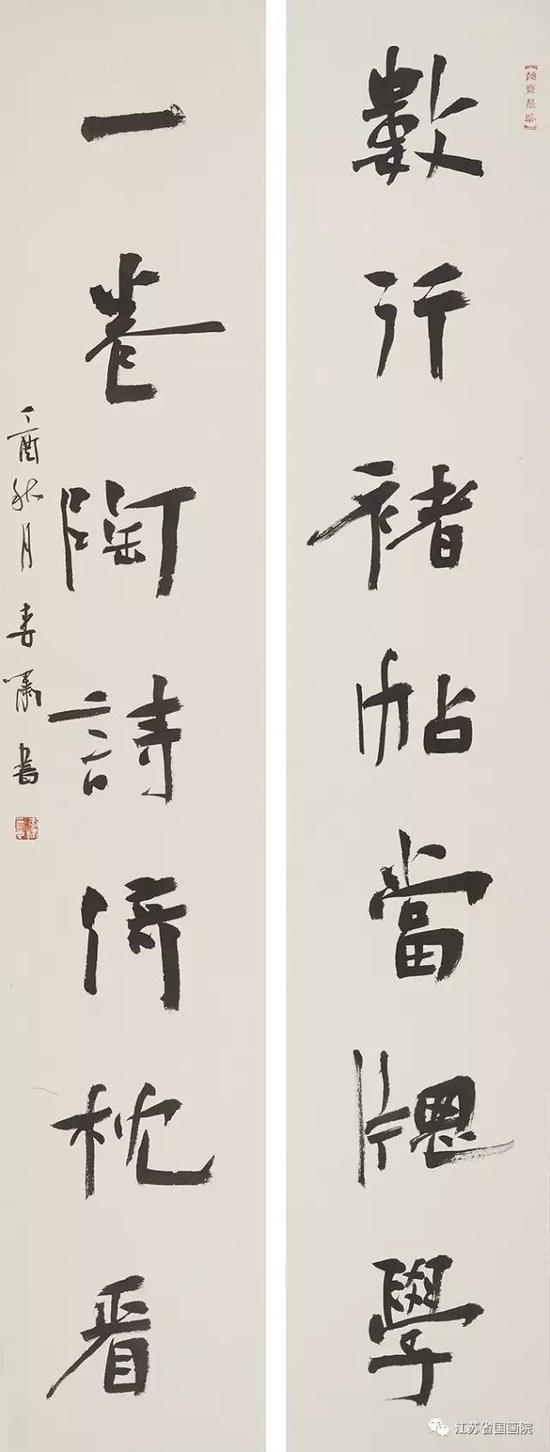 數行褚帖當牕學
一卷陶詩倚枕看
丁酉秋月
書
江苏省国画院